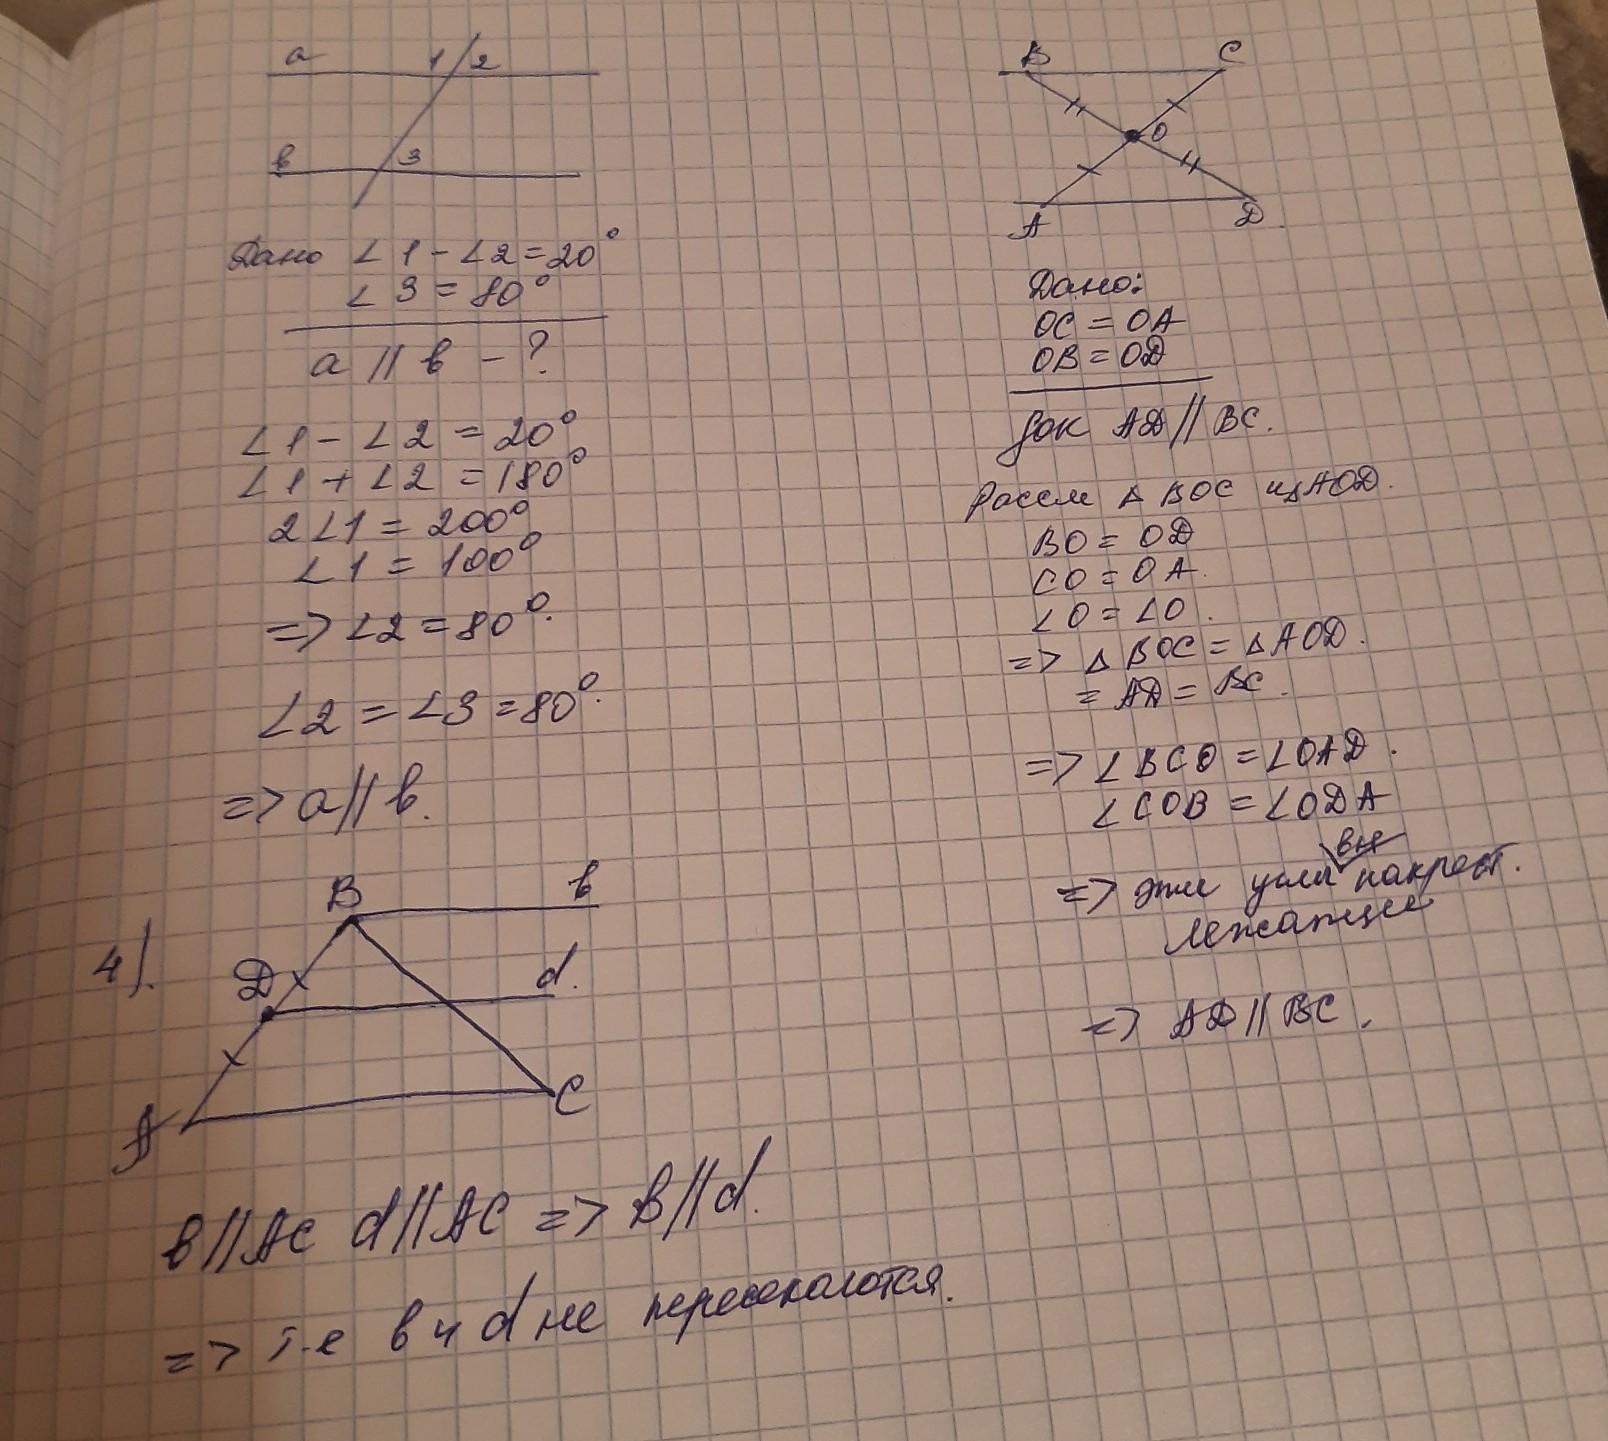 a 1 2
в 3
Дано ∠1 - ∠2 = 20°
∠3 = 80°
a || в - ?
∠1 - ∠2 = 20°
∠1 + ∠2 = 180°
2∠1 = 200°
∠1 = 100°
=> ∠2 = 80°.
∠2 = ∠3 = 80°.
=> a || в.
B C
O
A D
Дано:
OC = OA
OB = OD
док AD || BC.
Рассм △ BOC и △AOD.
BO = OD
CO = OA.
∠O = ∠O.
=> △ BOC = △AOD.
= AD = BC.
=> ∠BCO = ∠OAD.
∠COB = ∠ODA
вн
=> эти углы накрест.
лежащие
=> AD || BC.
4).
B в
D d.
A C
в || AC d || AC => в || d.
=> т.е в и d не пересекаются.